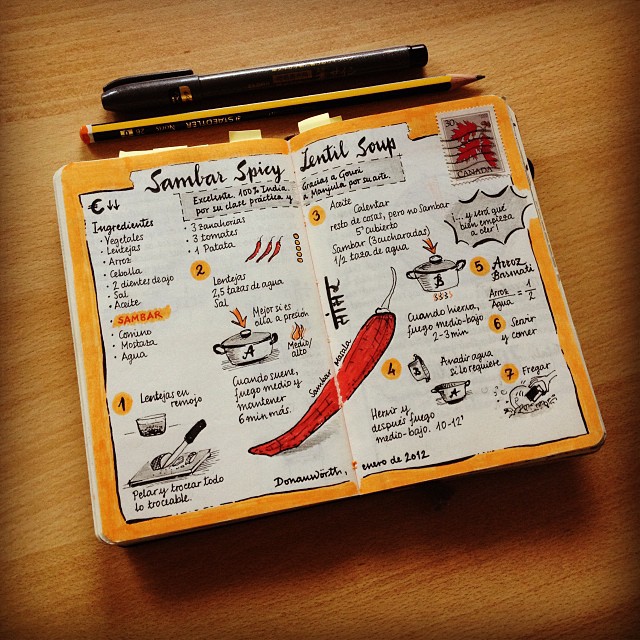 STAEDTLER Noris 2B
Sambar Spicy Lentil Soup
30
CANADA
Excelente. 100% India,
por su clase práctica y
Gracias a Gouri
a Manjula por su arte.
€↓↓
Ingredientes
· Vegetales
· Lentejas
· Arroz
· Cebolla
· 2 dientes de ajo
· Sal
· Aceite
SAMBAR
· Comino
· Mostaza
· Agua
· 3 zanahorias
· 3 tomates
· 1 Patata
1 Lentejas en
remojo
Pelar y trocear todo
lo troceable.
2 Lentejas
2,5 tazas de agua
Sal
Mejor si es
olla a presión
A
Medio/
alto
Cuando suene,
fuego medio y
mantener
6 min más.
Sambar Masala
सांभार
3 Aceite Calentar
resto de cosas, pero no Sambar
5' cubierto
Sambar (3 cucharadas)
1/2 taza de agua
B
¡... y será que
bien empieza
a oler!
Cuando hierva,
fuego medio-bajo
2-3 min
4 B
A
Añadir agua
si lo requiere
Hervir y
después fuego
medio-bajo. 10-12'
5 Arroz
Basmati
Arroz/Agua = 1/2
6 Servir
y comer
7 Fregar
Donauwörth, enero de 2012